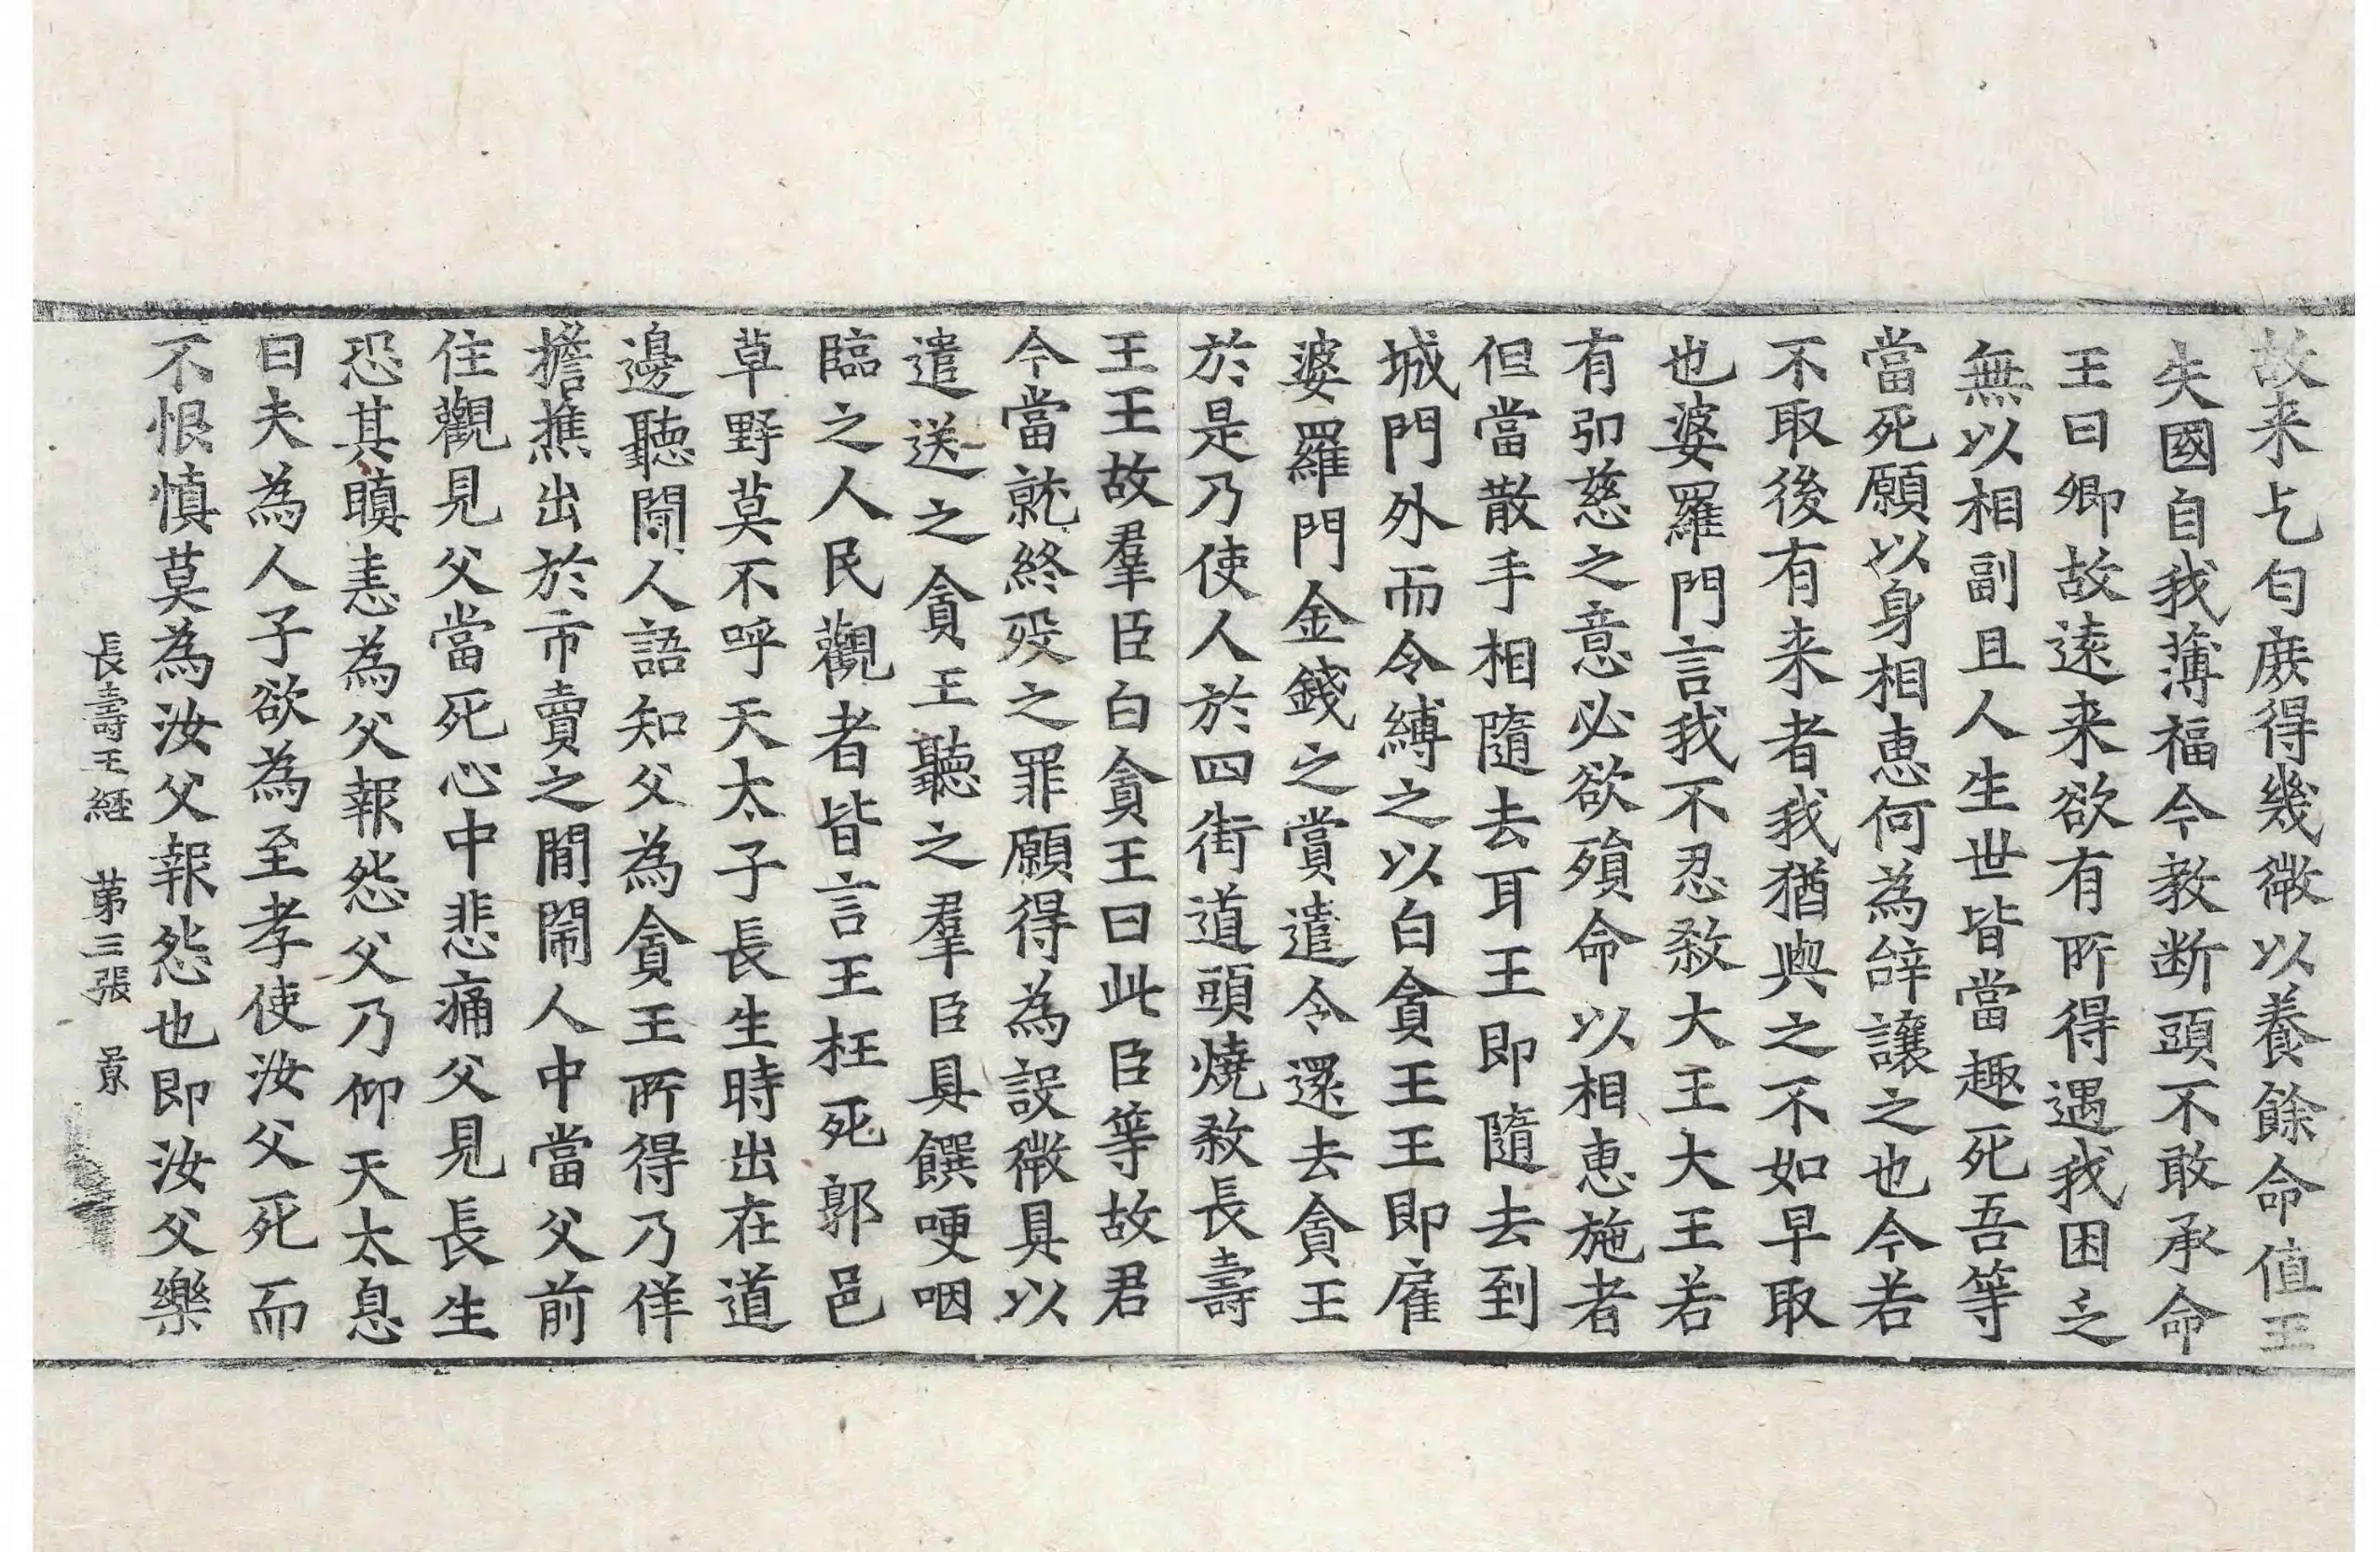 故来乞匂庻得幾微以養餘命值王
失國自我薄福今教断頭不敢承命
王曰卿故逺来欲有所得遇我困乏
無以相副且人生世皆當趣死吾等
當死願以身相恵何為辝讓之也今若
不取後有来者我猶與之不如早取
也婆羅門言我不忍煞大王大王若
有卬慈之意必欲殞命以相恵施者
但當散手相隨去耳王即隨去到
城門外而令縛之以白貪王王即雇
婆羅門金錢之賞遣令還去貪王
於是乃使人於四街道頭燒煞長壽
王王故羣臣白貪王曰此臣等故君
今當就終歿之罪願得為設微具以
遣送之貪王聽之羣臣具饌哽咽
臨之人民觀者皆言王枉死郭邑
草野莫不呼天太子長生時出在道
邊聽聞人語知父為貪王所得乃佯
擔樵出於市賣之閒鬧人中當父前
住觀見父當死心中悲痛父見長生
恐其瞋恚為父報怨父乃仰天太息
曰夫為人子欲為至孝使汝父死而
不恨慎莫為汝父報怨也即汝父樂
長壽王經　第三張　景